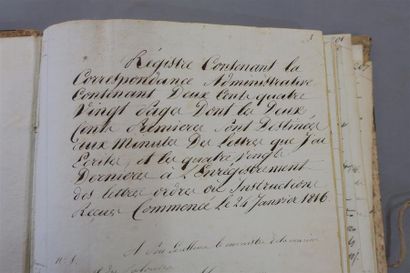 Régistre Contenant la
Correspondance Administrative
Contenant Deux Cent quatre
Vingt Pages Dont les Deux
Cents Premieres sont Destinées
aux Minutes Des Lettres que J'ai
Ecrites, et les quatre Vingts
Dernieres à L'Enrégistrement
des lettres ordres ou Instructions
Reçues Commencé Le 24 Janvier 1816
A Son Excellence le ministre de la marine